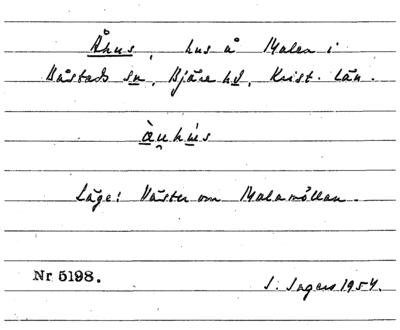 Åhus, hus å Malen i
Båstads sn, Bjäre hd, Krist. län.
àu̯hús
Läge: Väster om Malamöllan.
Nr 5198.
S. Sagers 1954.